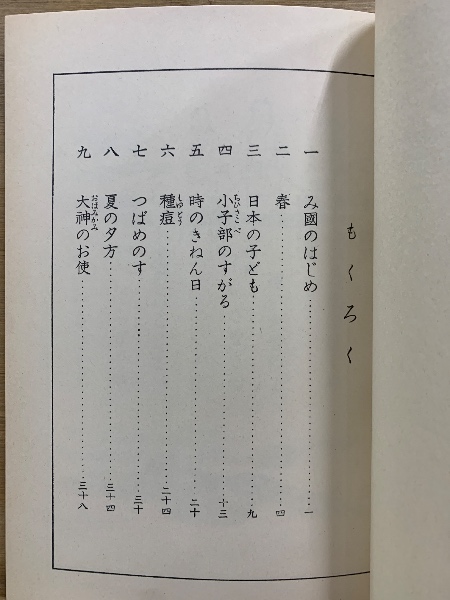 もくろく
一 み國のはじめ 一
二 春 四
三 日本の子ども 九
四 小子部のすがる 十三
五 時のきねん日 二十
六 種痘 二十四
七 つばめのす 三十
八 夏の夕方 三十四
九 大神のお使 三十八
ちひさこべ
しゆとう
おほみかみ